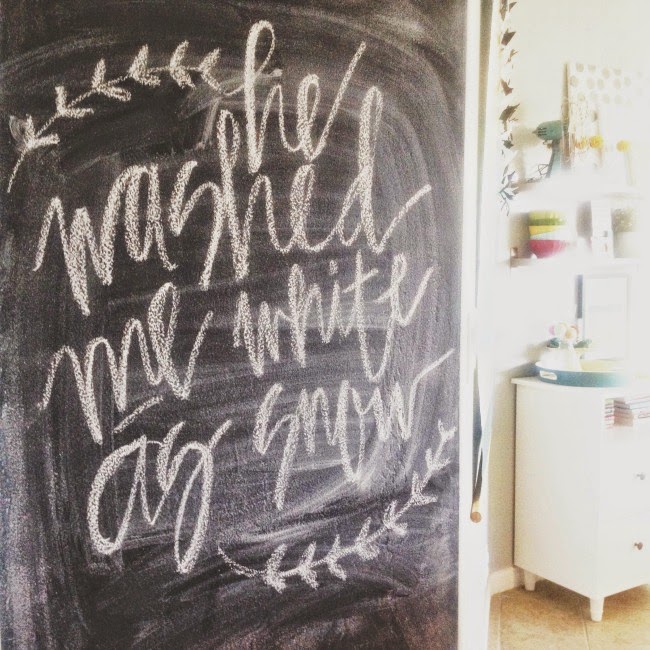 he
washed
me white
as snow